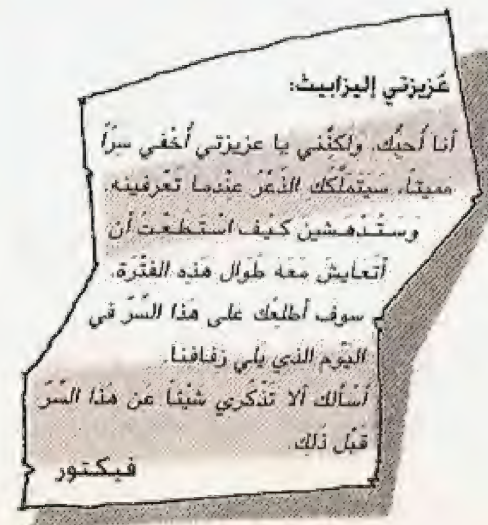 عَزيزتي إليزابيث:
أنا أُحِبُّك. ولكِنَّني يا عزيزتي أُخْفي سِرّاً
مميتاً. سَيَتملَّكك الذُّعْرُ عِنْدما تَعْرفينه.
وَسَتُدْهَشين كَيْف اسْتطعْتُ أن
أتعايشَ مَعَهُ طَوال هَذِه الفَتْرَة.
سوف أُطلعُك على هذا السِّرّ في
اليَوْم الذي يَلي زفافنا.
أسْألك ألا تَذْكُري شَيْئاً عَن هَذا السِّرّ
قَبْل ذَلِك.
فيكتور